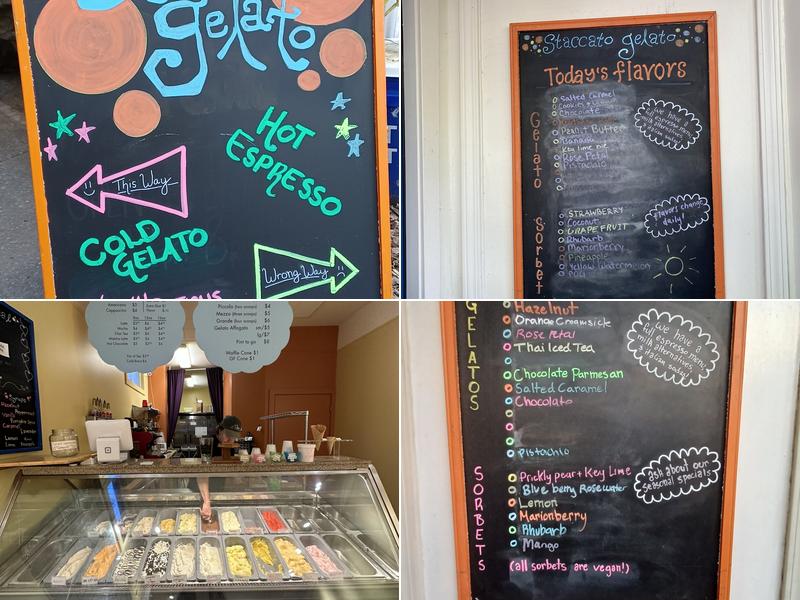 gelato
HOT
ESPRESSO
This Way
COLD
GELATO
Wrong Way
Staccato gelato
Today's flavors
Gelato
Salted Caramel
Chocolate
Peanut Butter
Banana
Key lime pie
Rose Petal
Pistachio
we have a
full espresso menu,
milk alternatives
& italian sodas!
Sorbet
STRAWBERRY
Coconut
GRAPEFRUIT
Rhubarb
Marionberry
Pineapple
Yellow Watermelon
POG
flavors change
daily!
Americano
Cappuccino
Latte
Mocha
Chai Tea
Matcha Latte
Hot Chocolate
Piccolo (two scoops) $4
Mezzo (three scoops) $5
Grande (four scoops) $6
Gelato Affogato sm/$5
lg/$7
Pint to go $8
Waffle Cone $1
GF Cone $1
GELATOS
Hazelnut
Orange Creamsicle
Rose Petal
Thai Iced Tea
Chocolate Parmesan
Salted Caramel
Chocolate
Pistachio
we have a
full espresso menu,
milk alternatives
& italian sodas!
SORBETS
Prickly pear + Key Lime
Blueberry Rosewater
Lemon
Marionberry
Rhubarb
Mango
(all sorbets are vegan!)
ask about our
seasonal specials